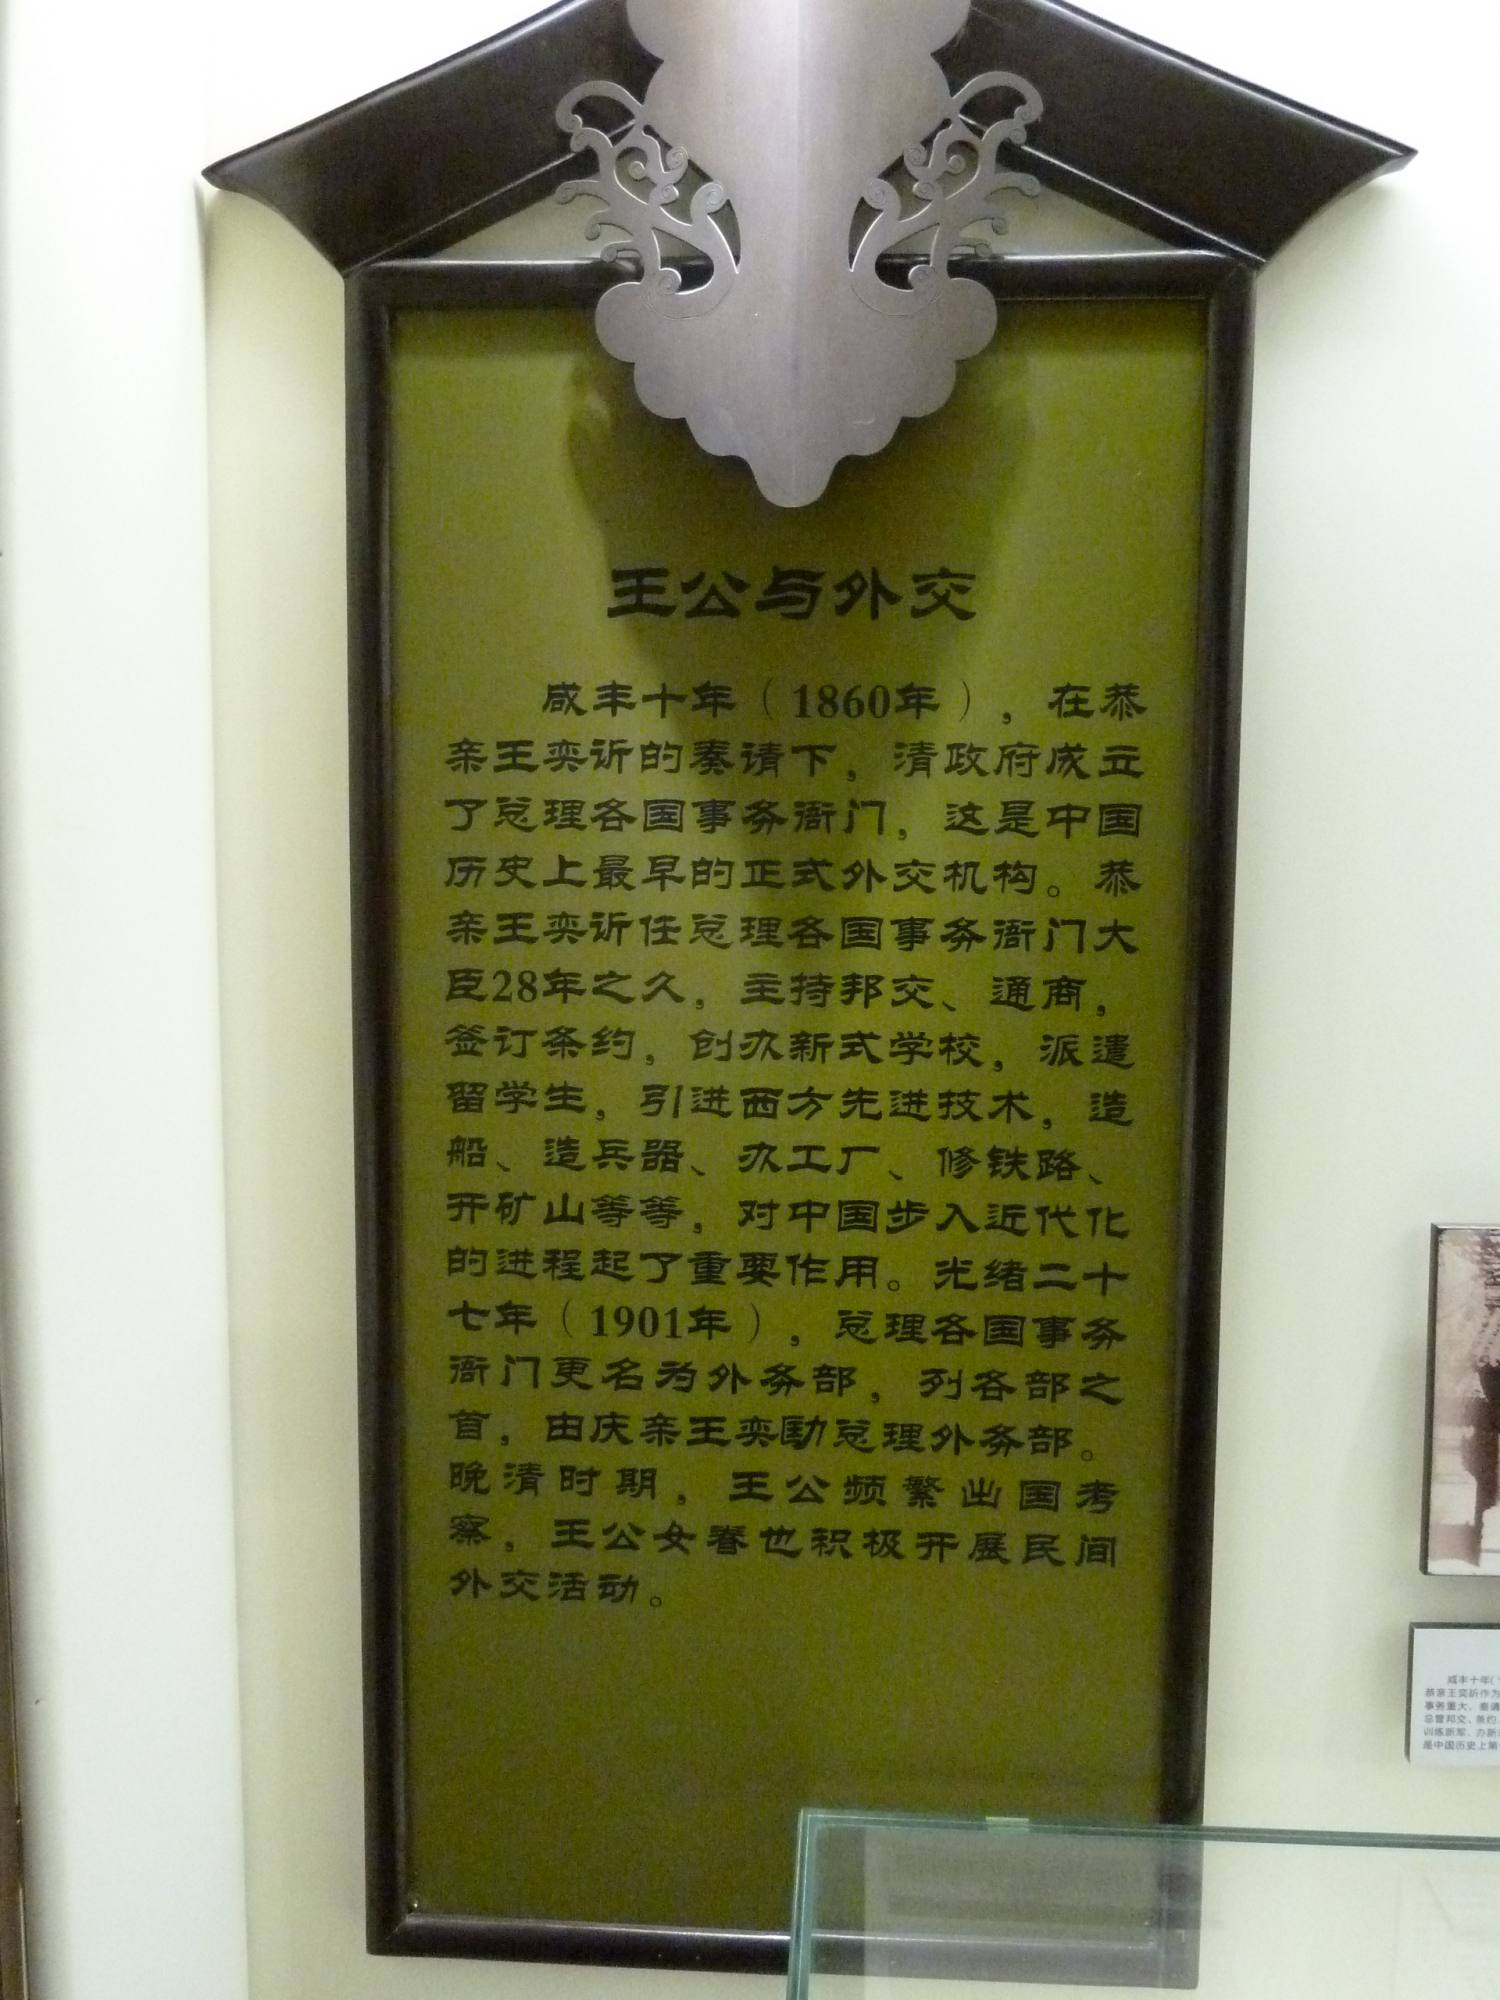 王公与外交
咸丰十年（1860年），在恭
亲王奕䜣的奏请下，清政府成立
了总理各国事务衙门，这是中国
历史上最早的正式外交机构。恭
亲王奕䜣任总理各国事务衙门大
臣28年之久，主持邦交、通商，
签订条约，创办新式学校，派遣
留学生，引进西方先进技术，造
船、造兵器、办工厂、修铁路、
开矿山等等，对中国步入近代化
的进程起了重要作用。光绪二十
七年（1901年），总理各国事务
衙门更名为外务部，列各部之
首，由庆亲王奕劻总理外务部。
晚清时期，王公频繁出国考
察，王公女眷也积极开展民间
外交活动。
咸丰十年(
恭亲王奕訢作为
事务重大，奏请
总管邦交、条约、
训练新军、办新
是中国历史上第